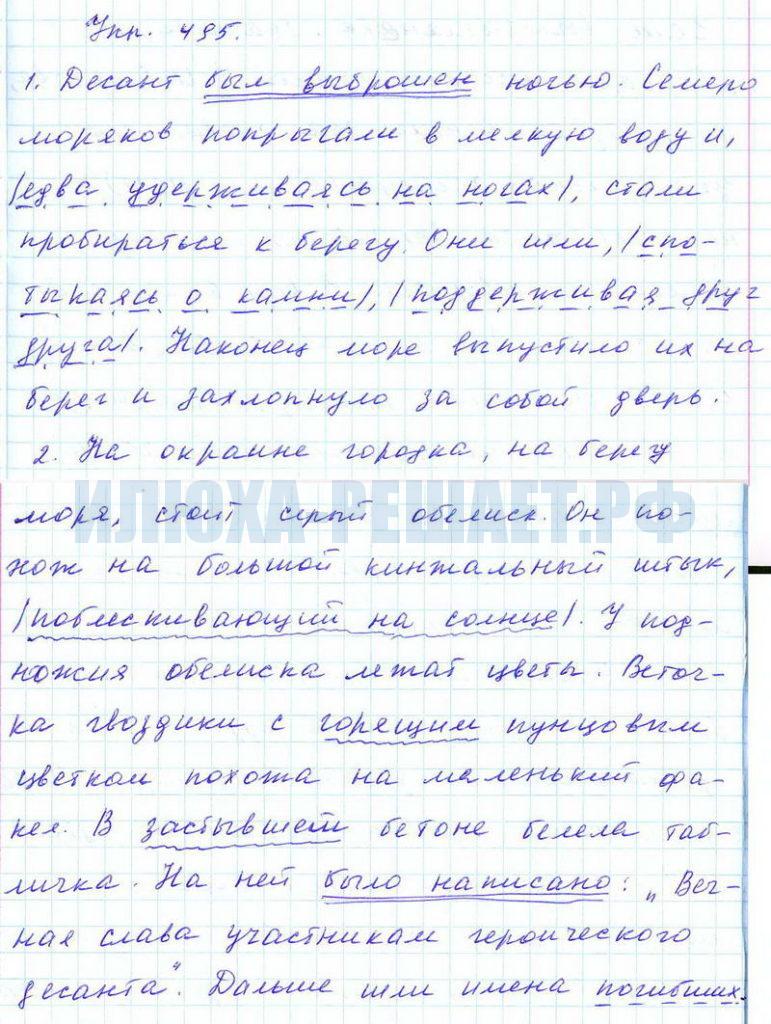 Упр. 495.
1. Десант был выброшен ночью. Семеро
моряков попрыгали в мелкую воду и,
/едва удерживаясь на ногах/, стали
пробираться к берегу. Они шли, /спо-
тыкаясь о камни/, /поддерживая друг
друга/. Наконец море выпустило их на
берег и захлопнуло за собой дверь.
2. На окраине городка, на берегу
ИЛЮХА-РЕШАЕТ.РФ
моря, стоит серый обелиск. Он по-
хож на большой кинжальный штык,
/поблескивающий на солнце/. У под-
ножия обелиска лежат цветы. Веточ-
ка гвоздики с горящим пунцовым
цветком похожа на маленький фа-
кел. В застывшем бетоне белела таб-
личка. На ней было написано: „Веч-
ная слава участникам героического
десанта". Дальше шли имена погибших.